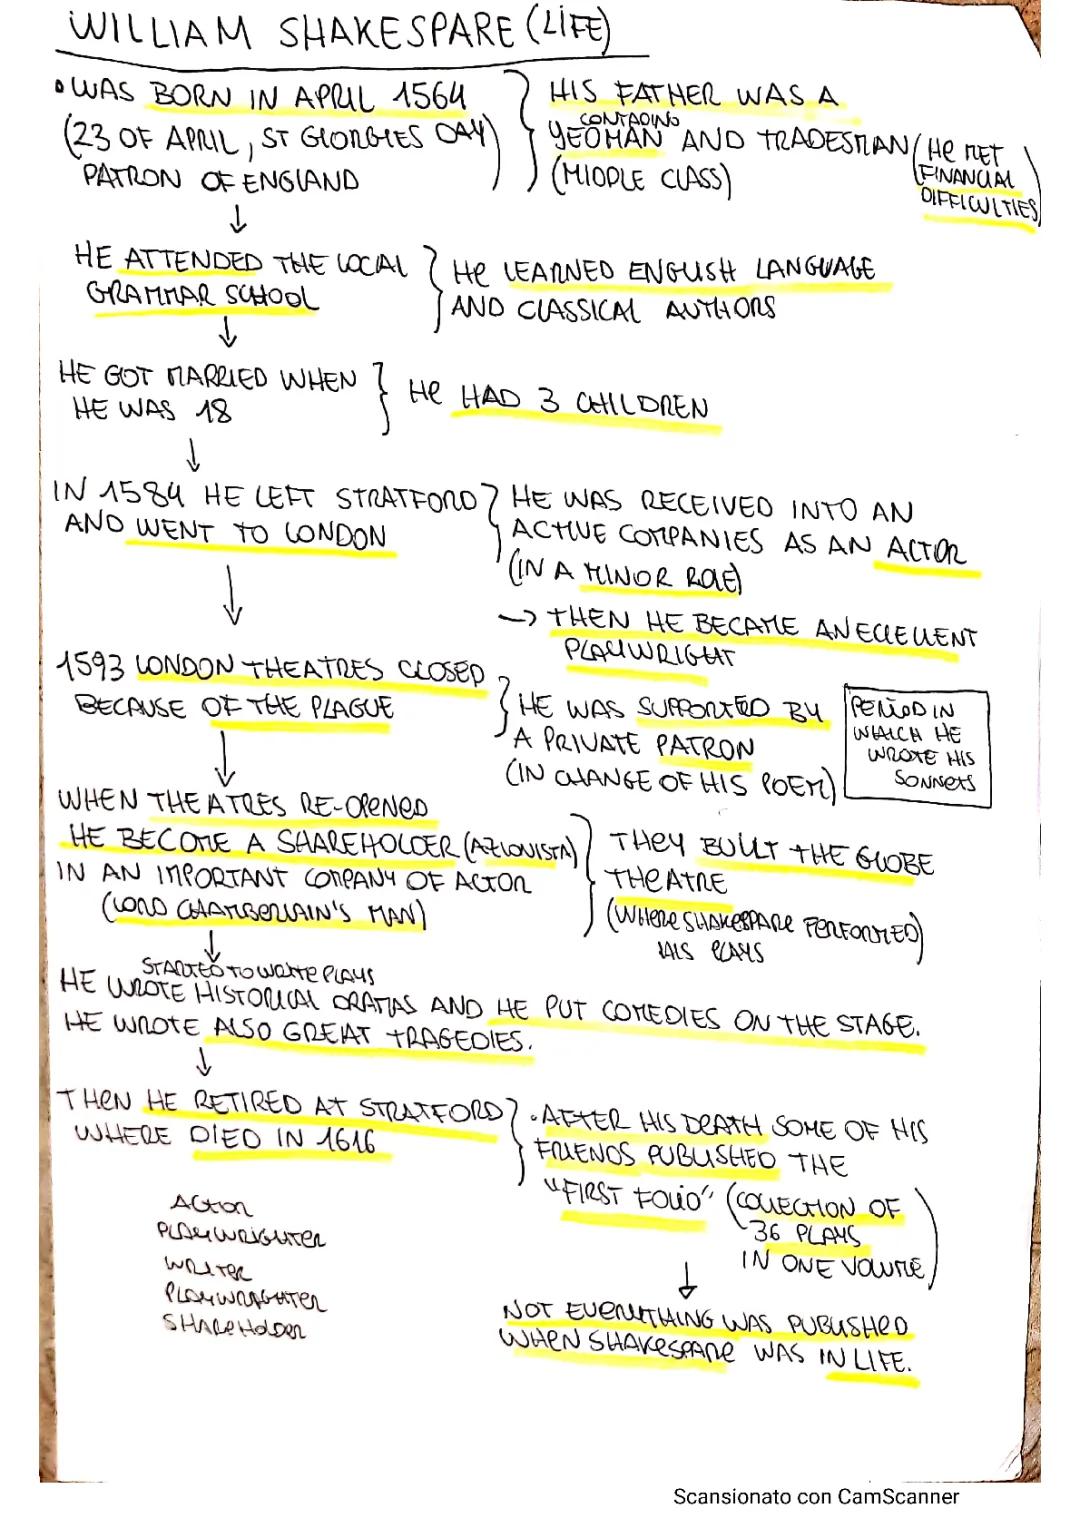 WILLIAM SHAKESPARE (LIFE)
• WAS BORN IN APRIL 1564
(23 OF APRIL, ST GEORGIES DAY)
PATRON OF ENGLAND
HIS FATHER WAS A
CONTADINO
YEOMAN AND TRADESMAN
(MIDDLE CLASS)
(He MET
FINANCIAL
DIFFICULTIES)
↓
HE ATTENDED THE LOCAL
GRAMMAR SCHOOL
He LEARNED ENGLISH LANGUAGE
AND CLASSICAL AUTHORS
↓
HE GOT MARRIED WHEN
HE WAS 18
He HAD 3 CHILDREN
↓
IN 1584 HE LEFT STRATFORD
AND WENT TO LONDON
HE WAS RECEIVED INTO AN
ACTIVE COMPANIES AS AN ACTOR
(IN A MINOR ROLE)
→ THEN HE BECAME AN ECLELLENT
PLAYWRIGHT
↓
1593 LONDON THEATRES CLOSED
BECAUSE OF THE PLAGUE
HE WAS SUPPORTED BY
A PRIVATE PATRON
(IN CHANGE OF HIS POEM)
PERIOD IN
WHICH HE
WROTE HIS
SONNETS
↓
WHEN THEATRES RE-OPENED
HE BECOME A SHAREHOLDER (AZIONISTA)
IN AN IMPORTANT COMPANY OF ACTOR
(LORD CHAMBERLAIN'S MAN)
THEY BUILT THE GLOBE
THEATRE
(WHERE SHAKESPARE PERFORMED)
HIS PLAYS
↓
STARTED TO WRITE PLAYS
HE WROTE HISTORICAL DRAMAS AND HE PUT COMEDIES ON THE STAGE.
HE WROTE ALSO GREAT TRAGEDIES.
↓
THEN HE RETIRED AT STRATFORD
WHERE DIED IN 1616
• AFTER HIS DEATH SOME OF HIS
FRIENDS PUBLISHED THE
"FIRST FOLIO" (COLLECTION OF
36 PLAYS
IN ONE VOLUME)
↓
NOT EVERYTHING WAS PUBLISHED
WHEN SHAKESPARE WAS IN LIFE.
ACTOR
PLAYWRIGHTER
WRITER
PLAYWRIGHTER
SHAREHOLDER
Scansionato con CamScanner